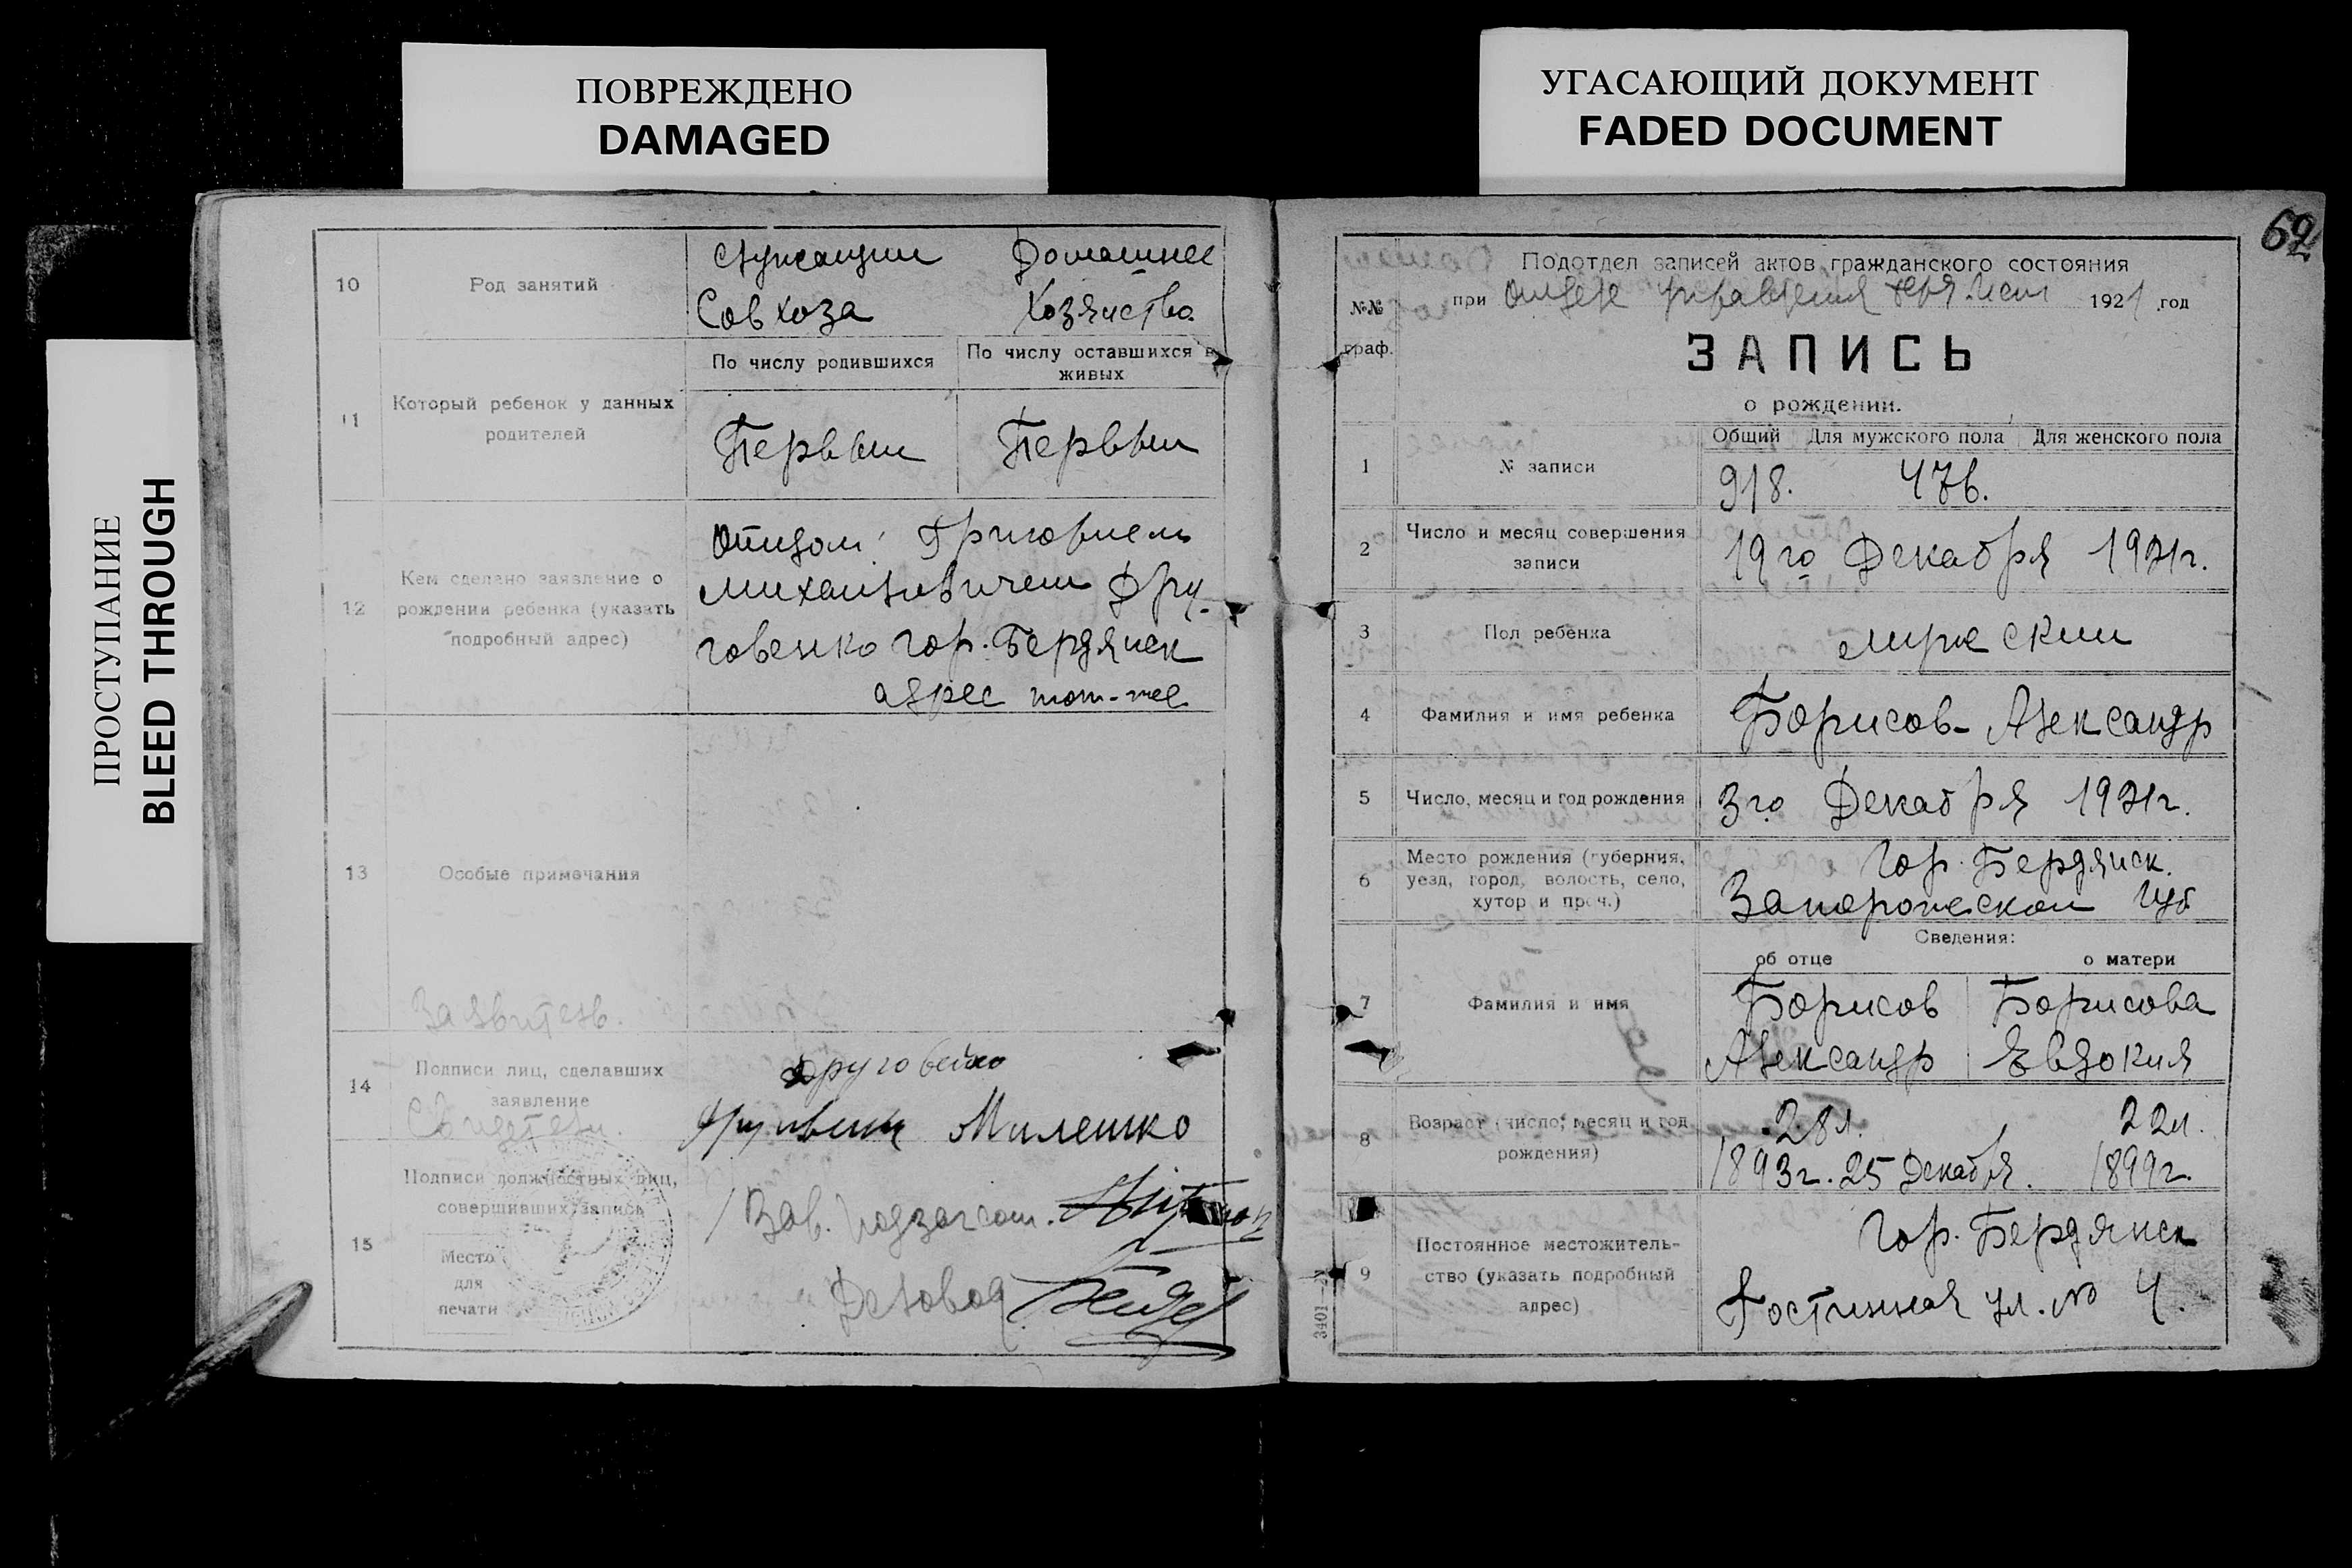 ПОВРЕЖДЕНО
DAMAGED
УГАСАЮЩИЙ ДОКУМЕНТ
FADED DOCUMENT
ПРОСТУПАНИЕ
BLEED THROUGH
10
Род занятий
Служащий Домашнее
Совхоза Хозяйство
11
Который ребенок у данных
родителей
По числу родившихся
По числу оставшихся в
живых
Первый Первый
12
Кем сделано заявление о
рождении ребенка (указать
подробный адрес)
Отцом Григорием
Михайловичем Дру-
говенко гор. Бердянск
адрес тот-же
13
Особые примечания
Заявитель.
14
Подписи лиц, сделавших
заявление
Свидетели.
Милешко
15
Подписи должностных лиц,
совершивших запись
Место
для
печати
Зав. подзагсом.
Деловод
62
№№
граф.
Подотдел записей актов гражданского состояния
при Отделе Управления 1921 год
ЗАПИСЬ
о рождении.
1
№ записи
Общий Для мужского пола Для женского пола
918. 476.
2
Число и месяц совершения
записи
19го Декабря 1921г.
3
Пол ребенка
мужеский
4
Фамилия и имя ребенка
Борисов- Александр
5
Число, месяц и год рождения
3го Декабря 1921г.
6
Место рождения (губерния,
уезд, город, волость, село,
хутор и проч.)
Гор. Бердянск.
Запорожской губ
Сведения:
об отце о матери
7
Фамилия и имя
Борисов Борисова
Александр Евдокия
8
Возраст (число, месяц и год
рождения)
28л. 22л.
1893г. 25 Декабря. 1899г.
9
Постоянное местожитель-
ство (указать подробный
адрес)
Гор. Бердянск
Гостинная ул. № 4.
3401—21